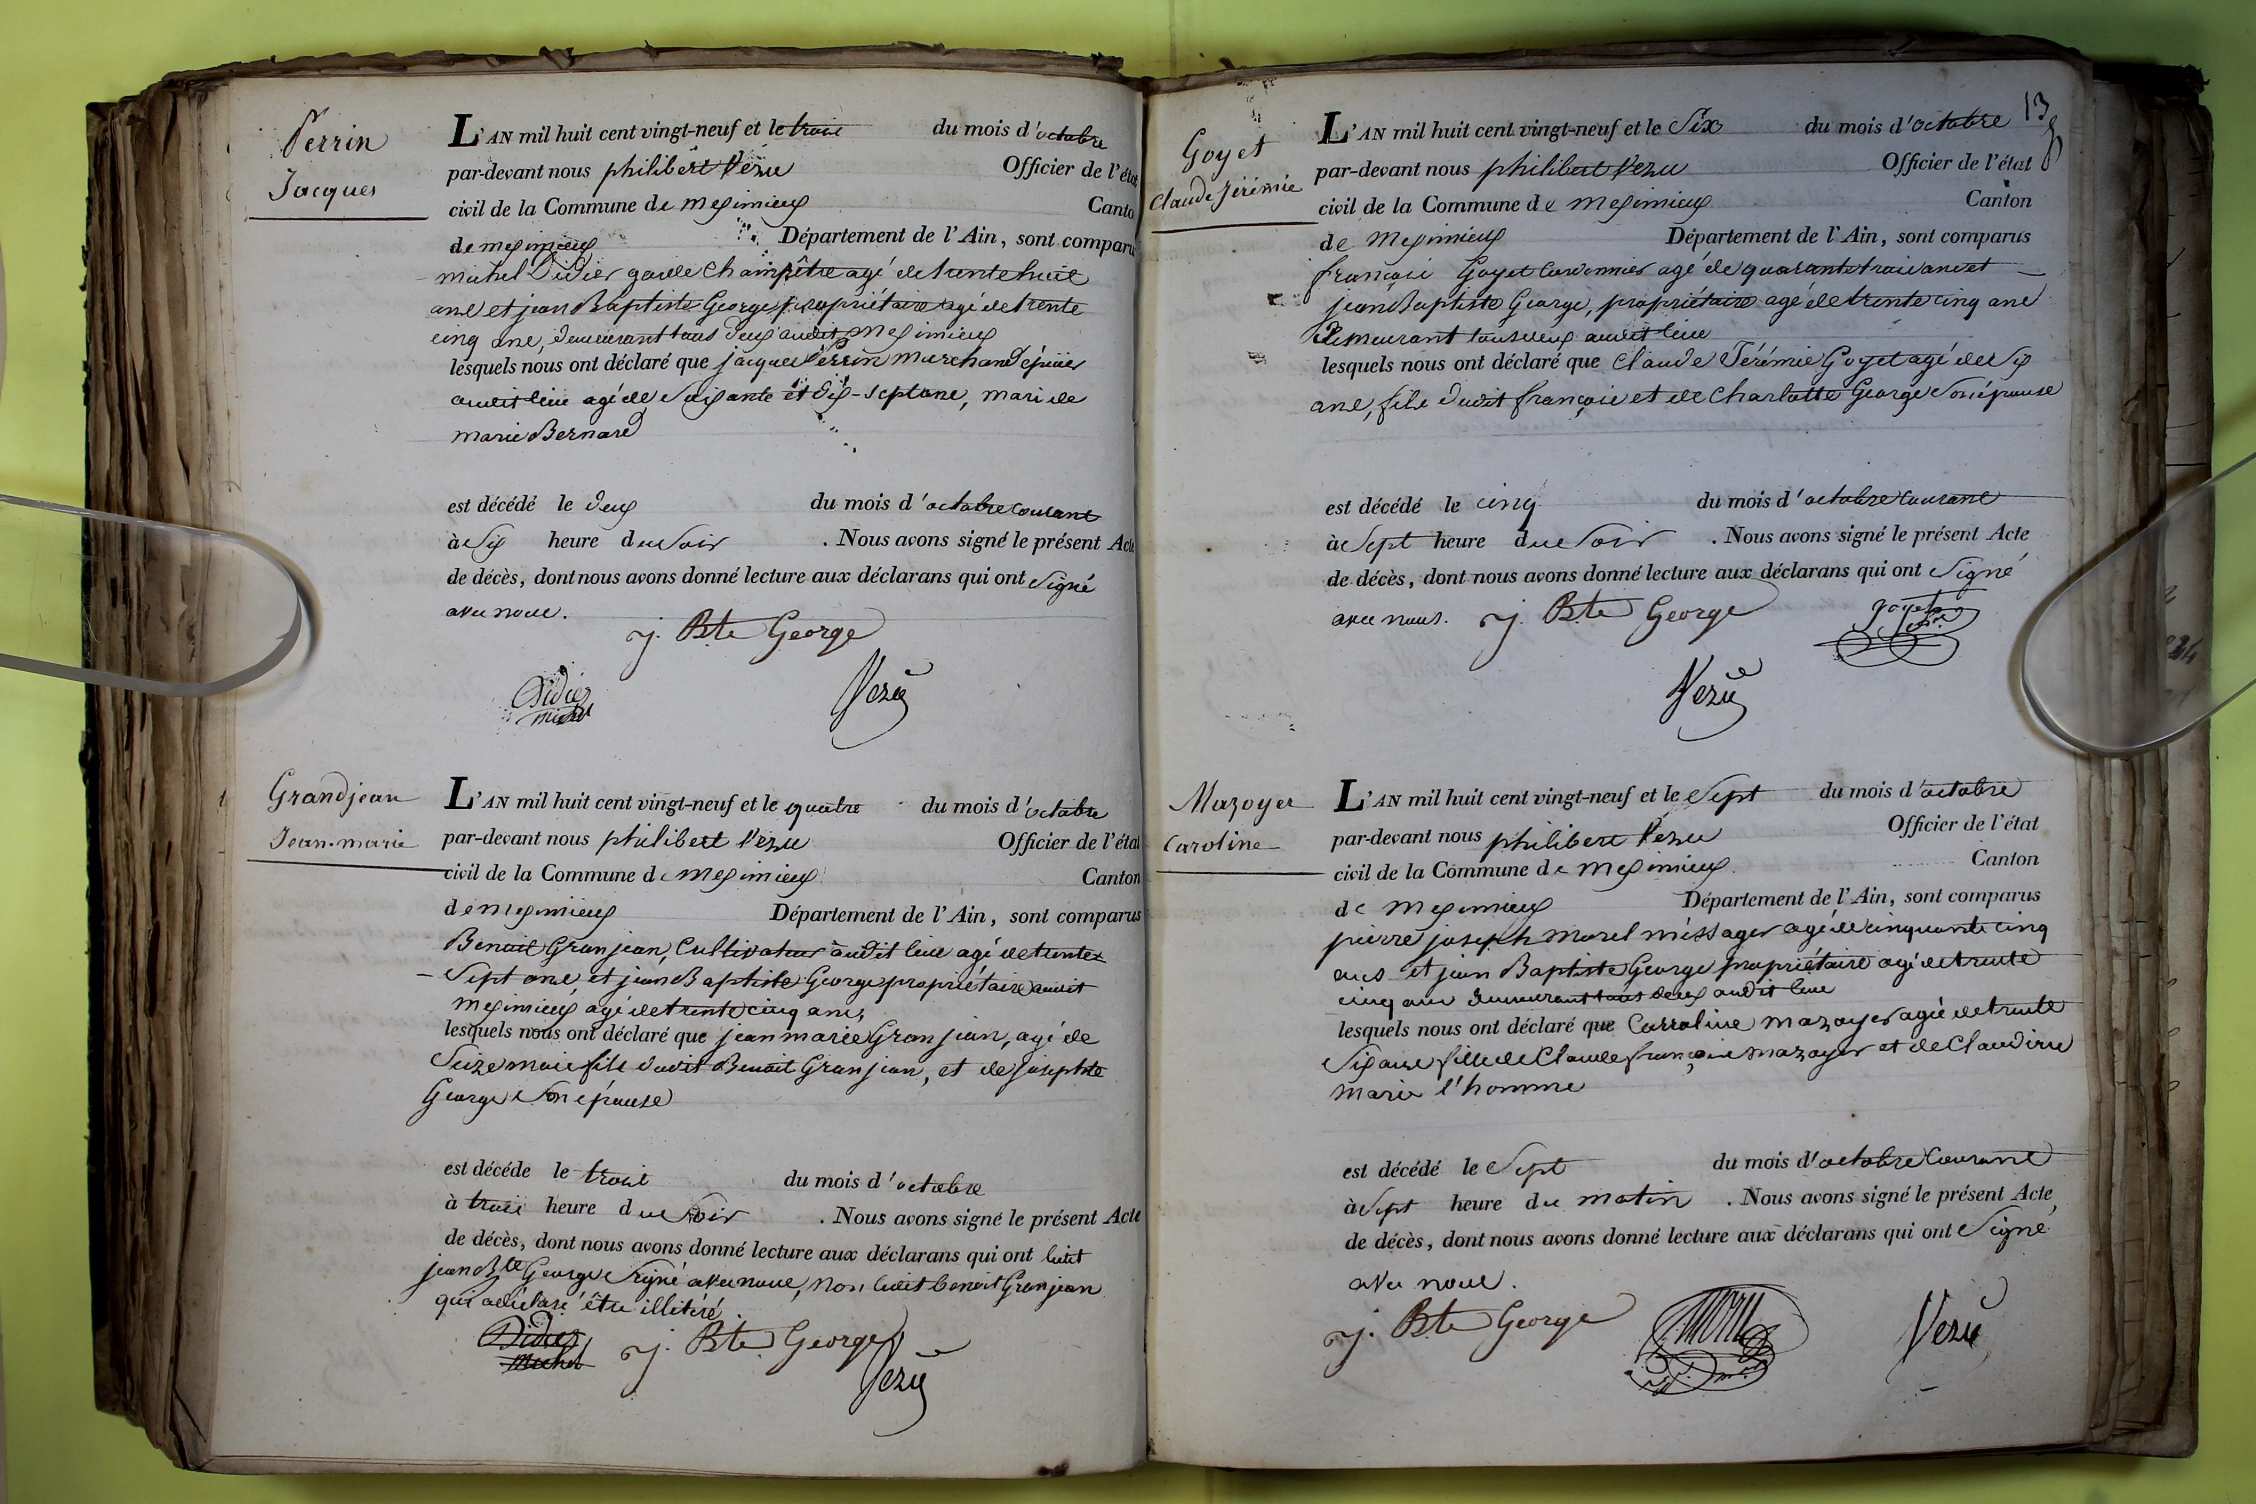 Perrin
Jacques
L'AN mil huit cent vingt-neuf et le trois du mois d'octobre
par-devant nous philibert Vezu Officier de l'état
civil de la Commune de meximieux Canto
de meximieux Département de l'Ain, sont comparu
michel Didier garde champêtre agé de trente huit
ans et jean Baptiste George propriétaire agé de trente
cinq ans, demeurant tous deux audit meximieux
lesquels nous ont déclaré que jacques Perrin marchand épicier
audit lieu agé de soixante et dix-sept ans, mari de
marie Bernard
est décédé le deux du mois d'octobre courant
à six heure du soir . Nous avons signé le présent Acte
de décès, dont nous avons donné lecture aux déclarans qui ont signé
avec nous.
j. Bte George
Didier
michel
Vezu
Grandjean
Jean-marie
L'AN mil huit cent vingt-neuf et le quatre du mois d'octobre
par-devant nous philibert Vezu Officier de l'état
civil de la Commune de meximieux Canton
de meximieux Département de l'Ain, sont comparus
Benoit Granjean, Cultivateur audit lieu agé de trente
sept ans, et jean Baptiste George propriétaire audit
meximieux agé de trente cinq ans,
lesquels nous ont déclaré que jean marie Granjean, agé de
seize mois fils dudit Benoit Granjean, et de josephte
George son épouse
est décéde le trois du mois d'octobre
à trois heure du soir . Nous avons signé le présent Acte
de décès, dont nous avons donné lecture aux déclarans qui ont ledit
jean Bte George signé avec nous, non ledit benoit Granjean
qui a déclaré être illitéré
Didier
michel
j. Bte George
Vezu
13
Goyet
Claude Jérémie
L'AN mil huit cent vingt-neuf et le Six du mois d'octobre
par-devant nous philibert Vezu Officier de l'état
civil de la Commune de meximieux Canton
de meximieux Département de l'Ain, sont comparus
françois Goyet Cordonnier agé de quarante trois ans et
jean Baptiste George, propriétaire agé de trente cinq ans
Demeurant tous deux audit lieu
lesquels nous ont déclaré que Claude Jérémie Goyet agé de six
ans, fils dudit françois et de Charlotte George son épouse
est décédé le cinq du mois d'octobre courant
à sept heure du soir . Nous avons signé le présent Acte
de décès, dont nous avons donné lecture aux déclarans qui ont signé
avec nous.
j. Bte George
goyet
Vezu
Mazoyer
Caroline
L'AN mil huit cent vingt-neuf et le sept du mois d'octobre
par-devant nous philibert Vezu Officier de l'état
civil de la Commune de meximieux Canton
de meximieux Département de l'Ain, sont comparus
pierre joseph morel méssager agé de cinquante cinq
ans et jean Baptiste George propriétaire agé de trente
cinq ans demeurant tous deux audit lieu
lesquels nous ont déclaré que Carroline mazoyer agée de trente
six ans fille de Claude françois mazoyer et de Claudine
marie l'homme
est décédé le sept du mois d'octobre courant
à sept heure du matin . Nous avons signé le présent Acte
de décès, dont nous avons donné lecture aux déclarans qui ont signé
avec nous.
j. Bte George
Vezu